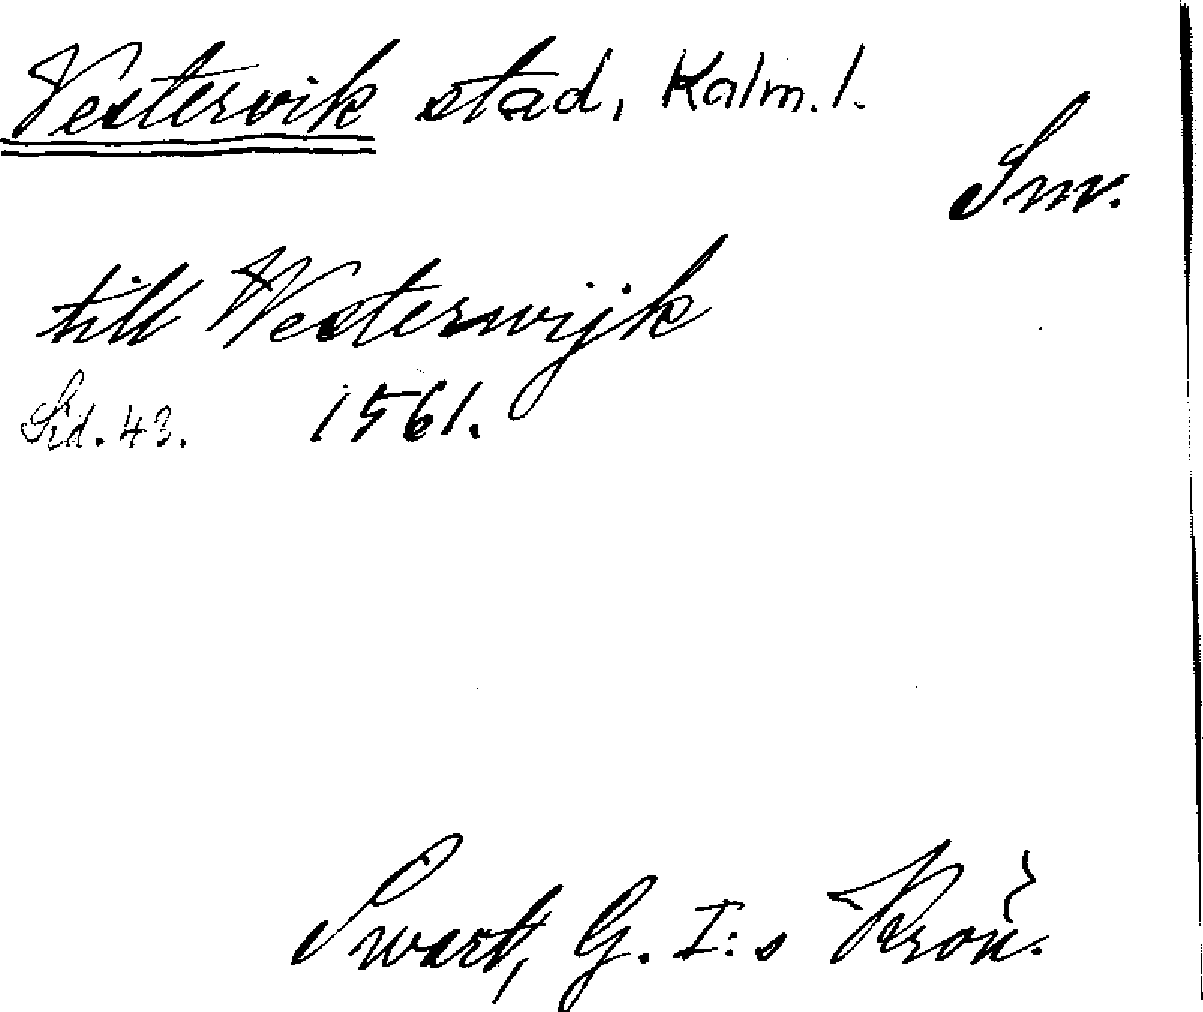 Vestervik stad, Kalm. l.
Sm.
till Westerwijk
Sid. 43. 1561.
Swart, G. I:s Krön.